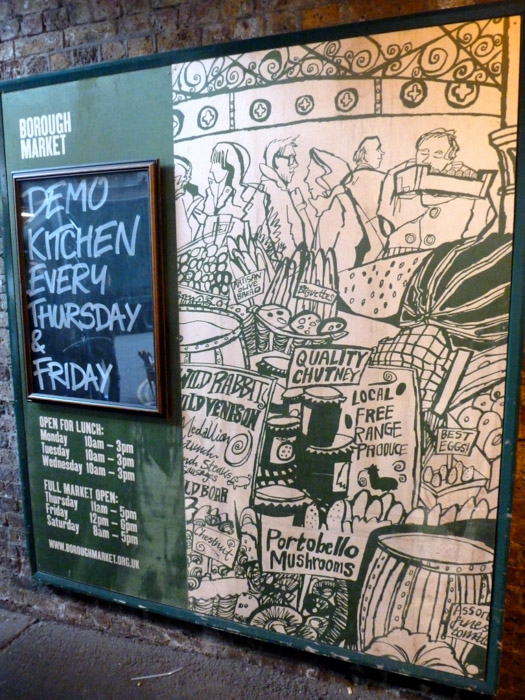 BOROUGH
MARKET
DEMO
KITCHEN
EVERY
THURSDAY
&
FRIDAY
OPEN FOR LUNCH:
Monday 10am – 3pm
Tuesday 10am – 3pm
Wednesday 10am – 3pm
FULL MARKET OPEN:
Thursday 11am – 5pm
Friday 12pm – 6pm
Saturday 8am – 5pm
WWW.BOROUGHMARKET.ORG.UK
ARTISAN
OLIVE
BREAD
BAGUETTES
QUALITY
CHUTNEY
WILD RABBIT
WILD VENISON
Medallion
Haunch
Steaks
Sausages
WILD BOAR
LOCAL
FREE
RANGE
PRODUCE
BEST
EGGS!
Chestnut
Portobello
Mushrooms